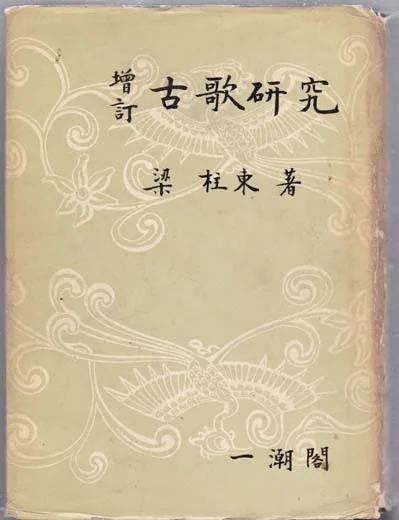 增訂 古歌研究
梁柱東 著
一潮閣